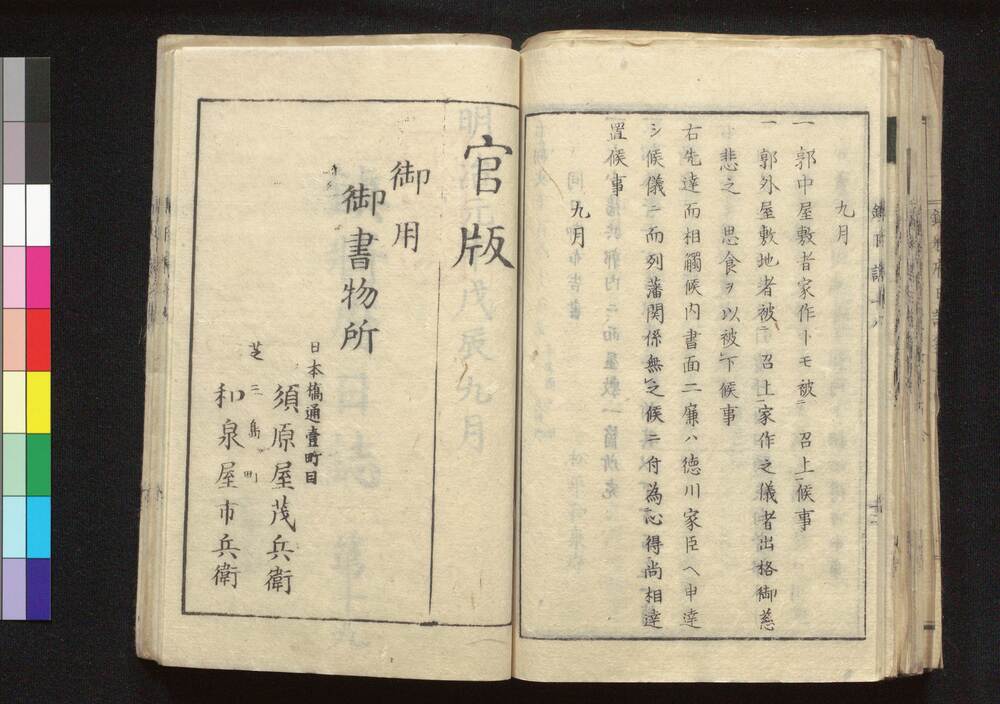 九月
一 郭中屋敷者家作トモ被ニ 召上候事
一 郭外屋敷地者被ニ 召上家作之儀者出格御慈
悲之 思食ヲ以被下候事
右先達而相觸候内書面二廉ハ徳川家臣ヘ申達
シ候儀ニ而列藩関係無之候ニ付為心得尚相達
置候事
九月
官版
御用
御書物所
日本橋通壹町目
須原屋茂兵衛
芝三島町
和泉屋市兵衛